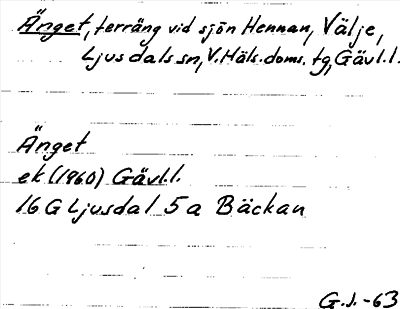 Änget, terräng vid sjön Hennan, Välje,
Ljusdals sn, V. Häls. doms. tg, Gävl. l.
Änget
ek (1960) Gävl. l.
16 G Ljusdal 5 a Bäckan
G. J. -63